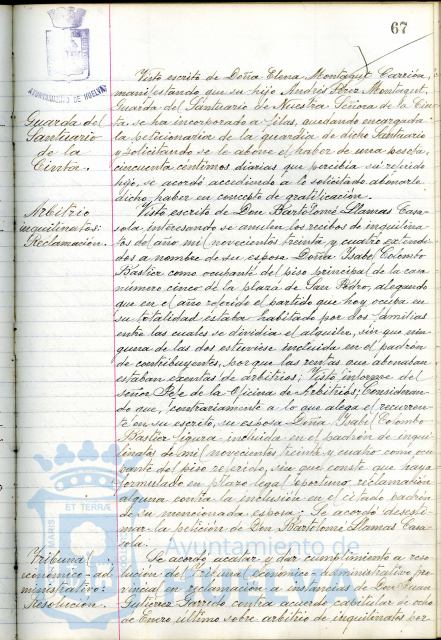 67
AYUNTAMIENTO DE HUELVA
Visto escrito de Doña Elena Montagut Carrión,
manifestando que su hijo Andrés Pérez Montagut,
Guarda del Santuario de Nuestra Señora de la Cin-
ta, se ha incorporado a filas, quedando encargada
la peticionaria de la guardia de dicho Santuario
y solicitando se le abone el haber de una peseta,
cincuenta céntimos diarias que percibía su referido
hijo, se acordó accediendo a lo solicitado abonarle
dicho haber en concepto de gratificación.
Guarda del
Santuario
de la
Cinta.
Visto escrito de Don Bartolomé Llamas Casa-
sola, interesando se anulen los recibos de inquilina-
tos del año mil novecientos treinta y cuatro extendi-
dos a nombre de su esposa Doña Isabel Colombo
Bastier como ocupante del piso principal de la casa
número cinco de la plaza de San Pedro, alegando
que en el año referido el partido que hoy ocupa en
su totalidad estaba habitado por dos familias
entre las cuales se dividía el alquiler, sin que nin-
guna de las dos estuviese incluida en el padrón
de contribuyentes, porque las rentas que abonaban
estaban exentas de arbitrios; Visto informe del
señor Jefe de la Oficina de Arbitrios; Consideran-
do que, contrariamente a lo que alega el recurren-
te en su escrito, su esposa Doña Isabel Colombo
Bastier figura incluida en el padrón de inqui-
linatos de mil novecientos treinta y cuatro como ocu-
pante del piso referido, sin que conste que haya
formulado en plazo legal oportuno reclamación
alguna contra la inclusión en el citado padrón
de su mencionada esposa; Se acordó desesti-
mar la petición de Don Bartolomé Llamas Casa-
sola.
Arbitrio
inquilinatos:
Reclamación.
Se acordó acatar y dar cumplimiento a reso-
lución del Tribunal Económico-administrativo pro-
vincial en reclamación a instancias de Don Juan
Gutiérrez Garrido contra acuerdo capitular de ocho
de Enero último sobre arbitrio de inquilinatos por
Tribunal
económico-ad-
ministrativo:
Resolución.
MARIS
ET TERRÆ
Ayuntamiento de